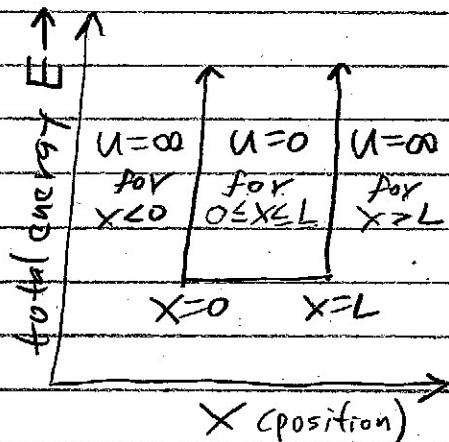 total energy E→
U=∞ for x<0
U=0 for 0≤x≤L
U=∞ for x>L
x=0
x=L
x (position)